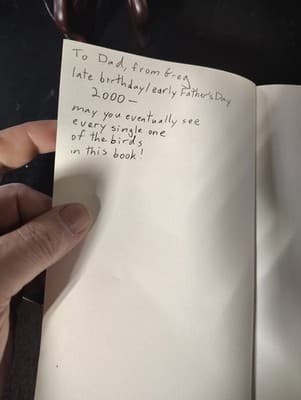 To Dad, from Greg
late birthday/early Father's Day
2000—
may you eventually see
every single one
of the birds
in this book!